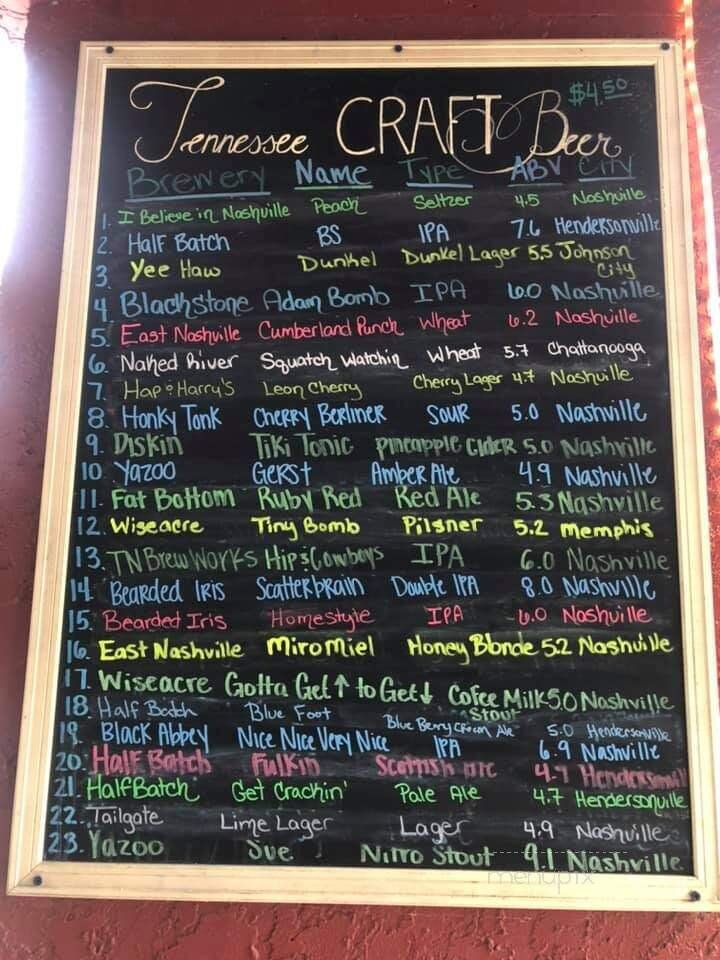 Tennessee CRAFT Beer $4.50
Brewery Name Type ABV City
1. I Believe in Nashville Peach Seltzer 4.5 Nashville
2. Half Batch BS IPA 7.6 Hendersonville
3. Yee Haw Dunkel Dunkel Lager 5.5 Johnson City
4. Blackstone Adam Bomb IPA 6.0 Nashville
5. East Nashville Cumberland Punch Wheat 6.2 Nashville
6. Naked River Squatch Watchin Wheat 5.7 Chattanooga
7. Hap & Harry's Leon Cherry Cherry Lager 4.7 Nashville
8. Honky Tonk Cherry Berliner Sour 5.0 Nashville
9. Diskin Tiki Tonic Pineapple Cider 5.0 Nashville
10 Yazoo Gerst Amber Ale 4.9 Nashville
11. Fat Bottom Ruby Red Red Ale 5.3 Nashville
12. Wiseacre Tiny Bomb Pilsner 5.2 Memphis
13. TN Brew Works Hip & Cowboys IPA 6.0 Nashville
14. Bearded Iris Scatterbrain Double IPA 8.0 Nashville
15. Bearded Iris Homestyle IPA 6.0 Nashville
16. East Nashville Miro Miel Honey Blonde 5.2 Nashville
17. Wiseacre Gotta Get ↑ to Get ↓ Cofee Milk Stout 5.0 Nashville
18. Half Batch Blue Foot Blue Berry Cream Ale 5.0 Hendersonville
19. Black Abbey Nice Nice Very Nice IPA 6.9 Nashville
20. Half Batch Fulkin Scottish 4.7 Hendersonvill
21. Half Batch Get Crackin' Pale Ale 4.7 Hendersonville
22. Tailgate Lime Lager Lager 4.9 Nashville
23. Yazoo Sue Nitro Stout 9.1 Nashville
menupix